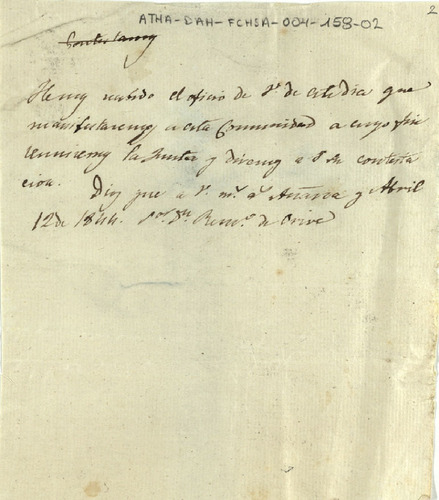 2
ATHA-DAH-FCHSA-004-158-02
Contestamos
Hemos recibido el oficio de V. de este dia que
manifestaremos a esta Comunidad a cuyo fin
reuniremos la Junta y diremos a V. su contesta
cion. Dios gue a V. m.s a.s Añana y Abril
12 de 1844. de Orive